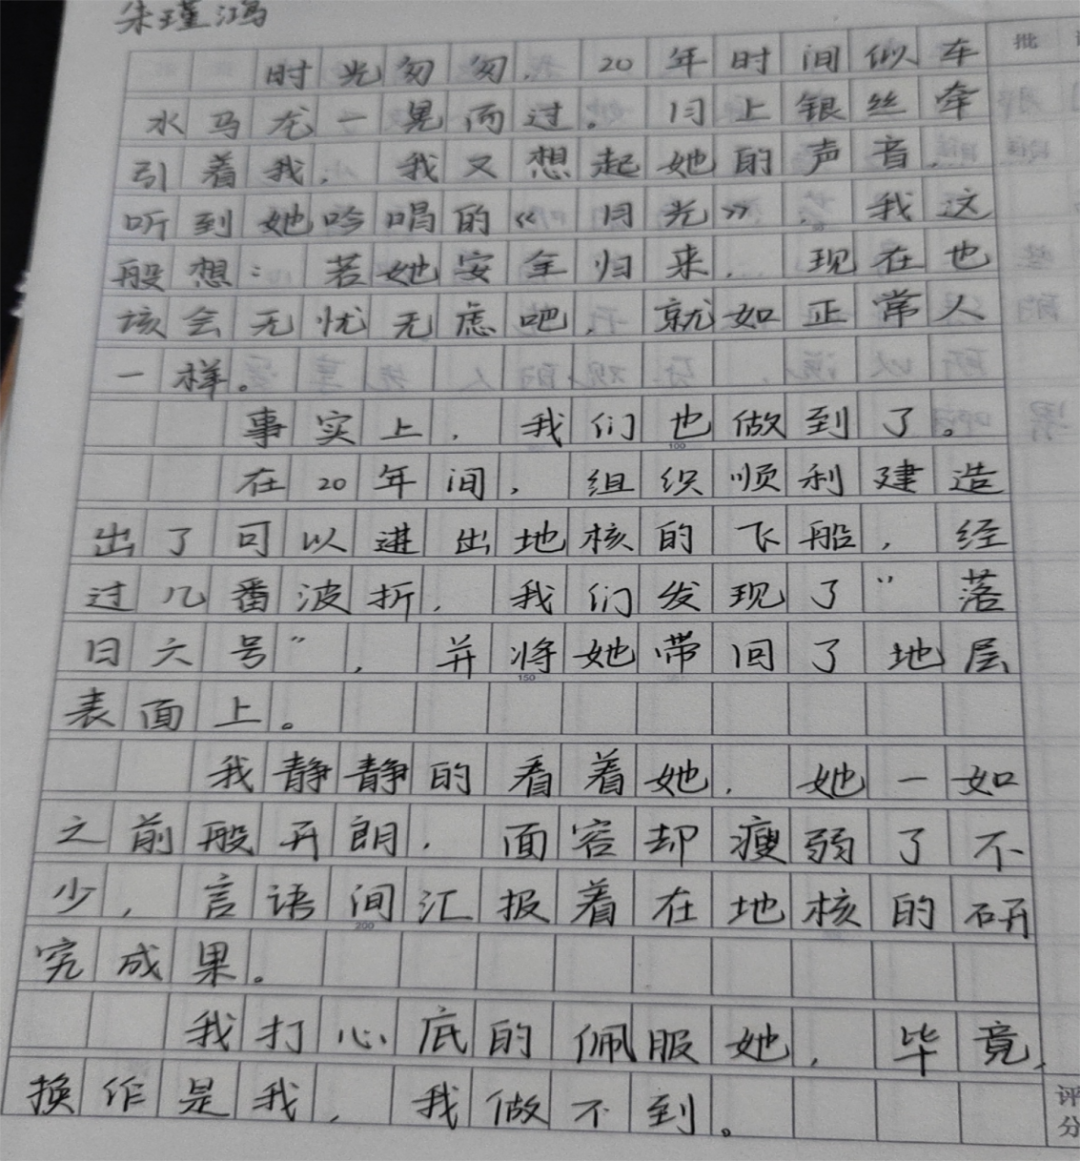 朱瑾鸿
时光匆匆，20年时间似车
水马龙一晃而过。月上银丝牵
引着我，我又想起她的声音，
听到她吟唱的《月光》，我这
般想：若她安全归来，现在也
该会无忧无虑吧，就如正常人
一样。
事实上，我们也做到了。
100
在20年间，组织顺利建造
出了可以进出地核的飞船，经
过几番波折，我们发现了“落
日六号”，并将她带回了地层
150
表面上。
我静静的看着她，她一如
之前般开朗，面容却瘦弱了不
少，言语间汇报着在地核的研
200
究成果。
我打心底的佩服她，毕竟，
换作是我，我做不到。
批
评分